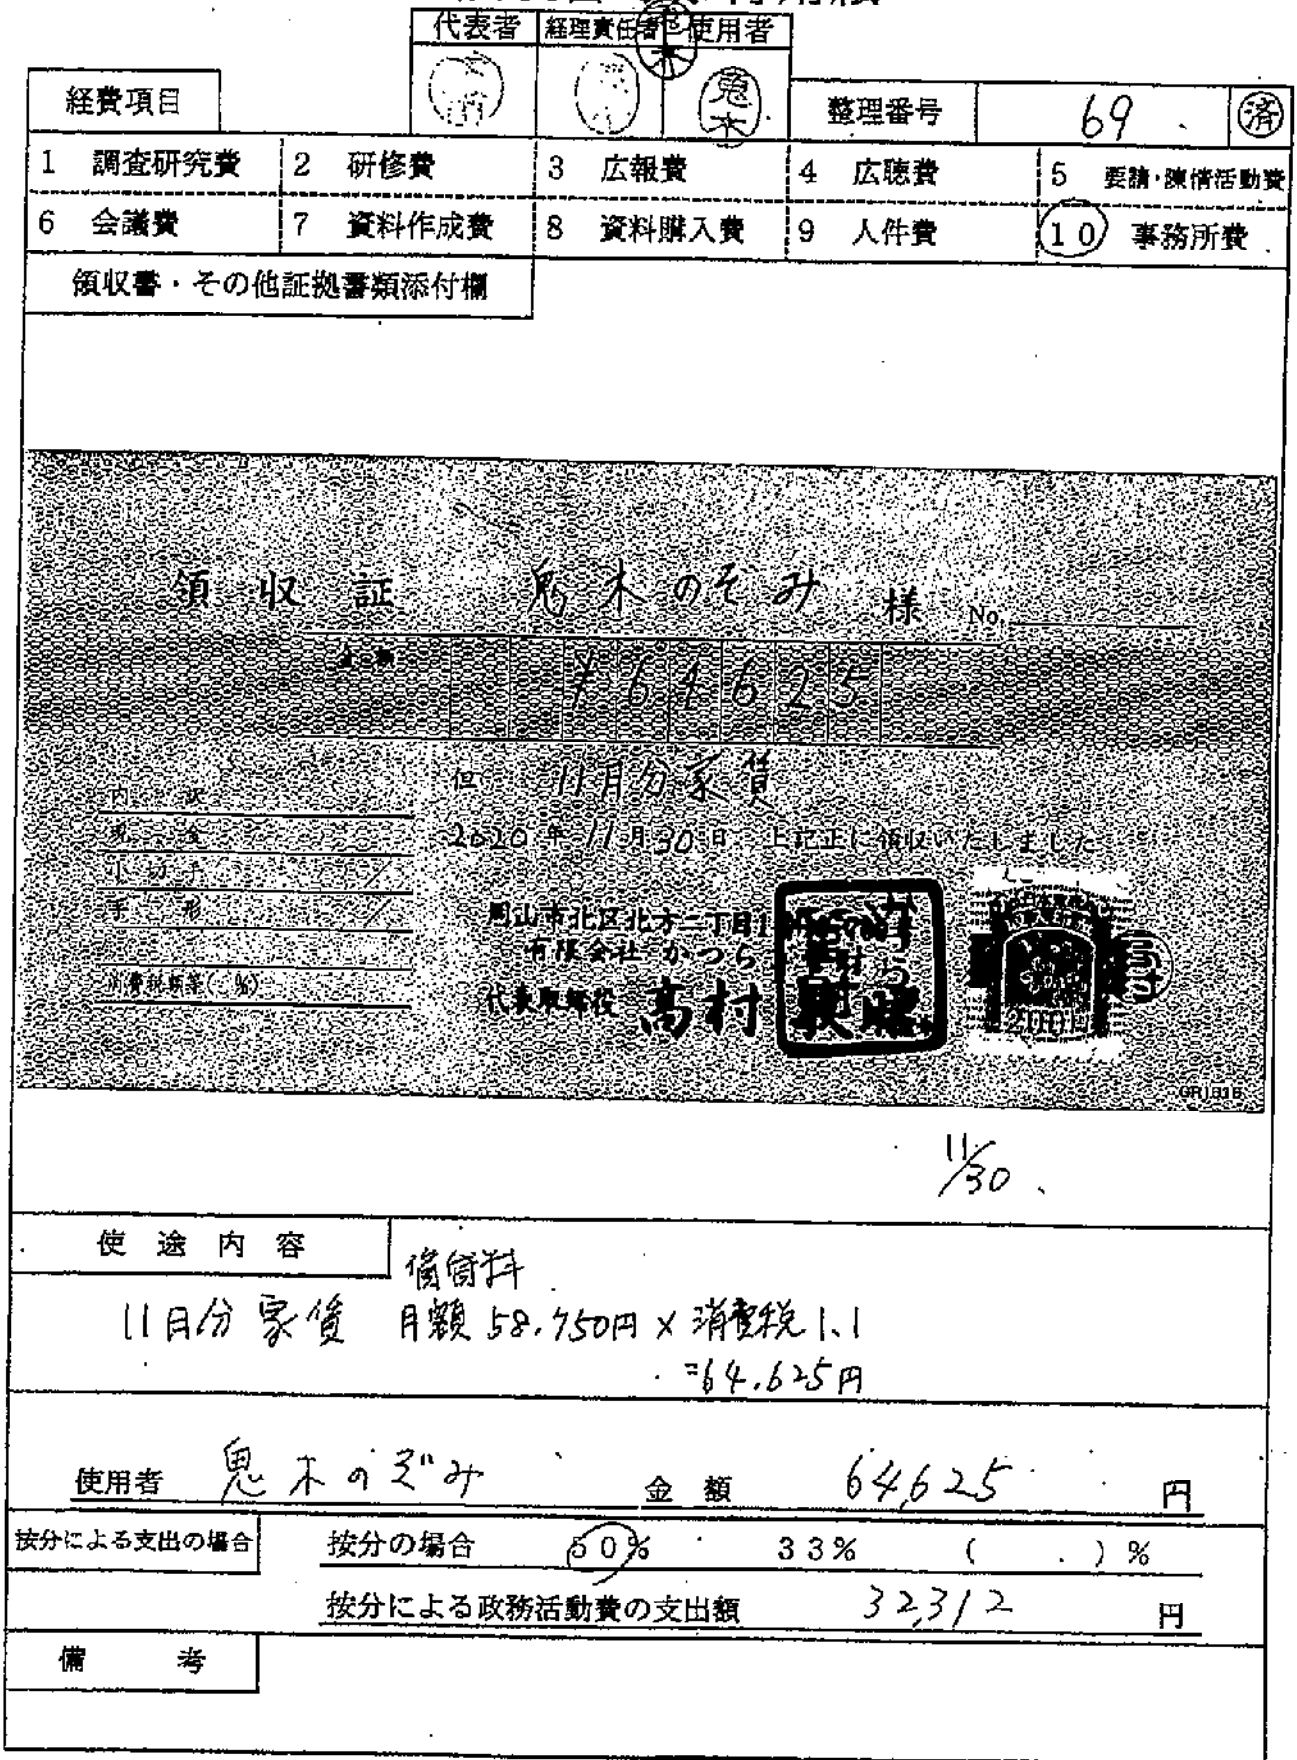 代表者 経理責任者 使用者
鬼木
経費項目 整理番号 69 済
1 調査研究費 2 研修費 3 広報費 4 広聴費 5 要請・陳情活動費
6 会議費 7 資料作成費 8 資料購入費 9 人件費 10 事務所費
領収書・その他証拠書類添付欄
領収証 鬼木のぞみ 様 No.
金額 ¥64625
但 11月分家賃
内訳
2020年11月30日 上記正に領収いたしました
現金
小切手
手形
岡山市北区北方二丁目1
有限会社 かつら
消費税額等( %)
代表取締役 高村
200円
GR1316
11/30
使途内容
借借料
11月分家賃 月額58,750円×消費税1.1
=64,625円
使用者 鬼木のぞみ 金額 64,625 円
按分による支出の場合 按分の場合 50% 33% ( . )%
按分による政務活動費の支出額 32,312 円
備考